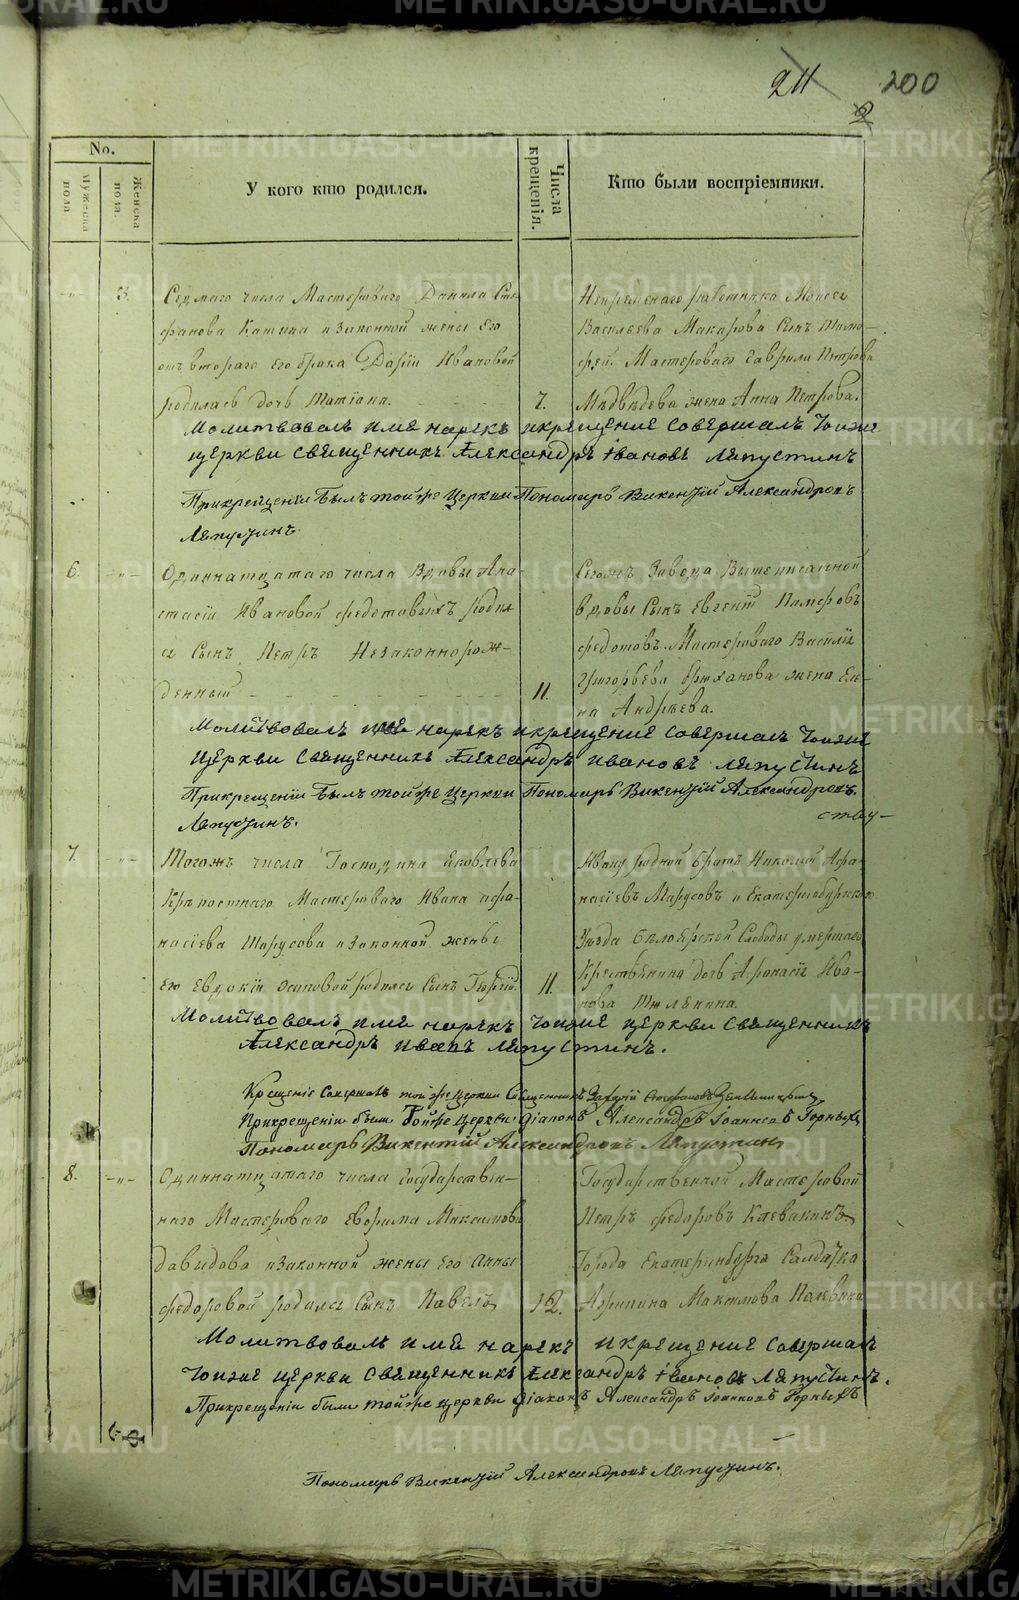 211 200
2
No.
Мужеска пола
Женска пола.
У кого кто родился.
Числа крещенія.
Кто были воспріемники.
3. Седмаго числа Мастероваго Данила Сте-
фанова Катина и законной жены Его
отъ втораго Его брака Даріи Ивановой
родилась дочь Татіана. 7.
Непременнаго работника Моисея
Васильева Макарова Сынъ Тимо-
фей. Мастероваго Гаврила Петрова
Медведева жена Анна Петрова.
Молитвовалъ имя нарекъ и крещение совершалъ тоиже
церкви священникъ Александръ Ивановъ Ляпустинъ
При крещеніи былъ тойже Церкви Пономарь Викентій Александровъ
Ляпустинъ
6. Одиннатцатаго числа Вдовы Ана-
стасіи Ивановой Федотовыхъ родил-
ся Сынъ Петръ Незаконнорож-
денный 11.
Завода Вышеписанной
вдовы Сынъ Евгеній
Федотовъ. Мастероваго Василія
Григорьева жена Еле-
на Андреева.
Молитвовалъ имя нарекъ и крещение совершалъ тоиже
Церкви Священникъ Александръ Ивановъ Ляпустинъ
При крещеніи былъ тойже Церкви Пономарь Викентій Александровъ
Ляпустинъ.
7. Тогожъ числа Господина Яковлева
Крепостнаго Мастероваго Ивана Афа-
насіева Марусова и законной жены
его Евдокіи Осиповой родился Сынъ Георгій. 11.
Ивану родной братъ Николай Афа-
насіевъ Марусовъ и Екатеринбургскаго
Уезда Белоярской Слободы умершаго
Крестьянина дочь Афанасія Ива-
нова Тюленина.
Молитвовалъ имя нарекъ тоиже церкви священникъ
Александръ Иванъ Ляпустинъ.
Крещеніе Совершалъ тойже церкви Священникъ Захарій Стефановъ
При крещеніи были Тойже церкви діаконъ Александръ Іоанновъ Горныхъ
Пономарь Викентій Александровъ Ляпустинъ
8. Одиннатцатаго числа Государствен-
наго Мастероваго Ефрима Максимова
Давидова и законной жены Его Анны
Федоровой родился Сынъ Павелъ 12.
Государственной Мастеровой
Петръ Федоровъ Клевакинъ
Города Екатеринбурга Салдатка
Агрипина Максимова
Молитвовалъ имя нарекъ и крещение совершалъ
тоиже церкви священникъ Александръ Ивановъ Ляпустинъ.
При крещеніи были тойже церкви діаконъ Александръ Іоанновъ Горныхъ
Пономарь Викентій Александровъ Ляпустинъ.
METRIKI.GASO-URAL.RU